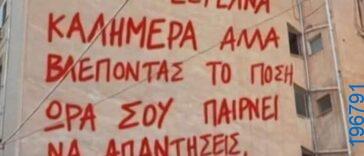 ΚΑΛΗΜΕΡΑ ΑΛΛΑ
ΒΛΕΠΟΝΤΑΣ ΤΟ ΠΟΣΗ
ΩΡΑ ΣΟΥ ΠΑΙΡΝΕΙ
ΝΑ ΑΠΑΝΤΗΣΕΙΣ,
196791